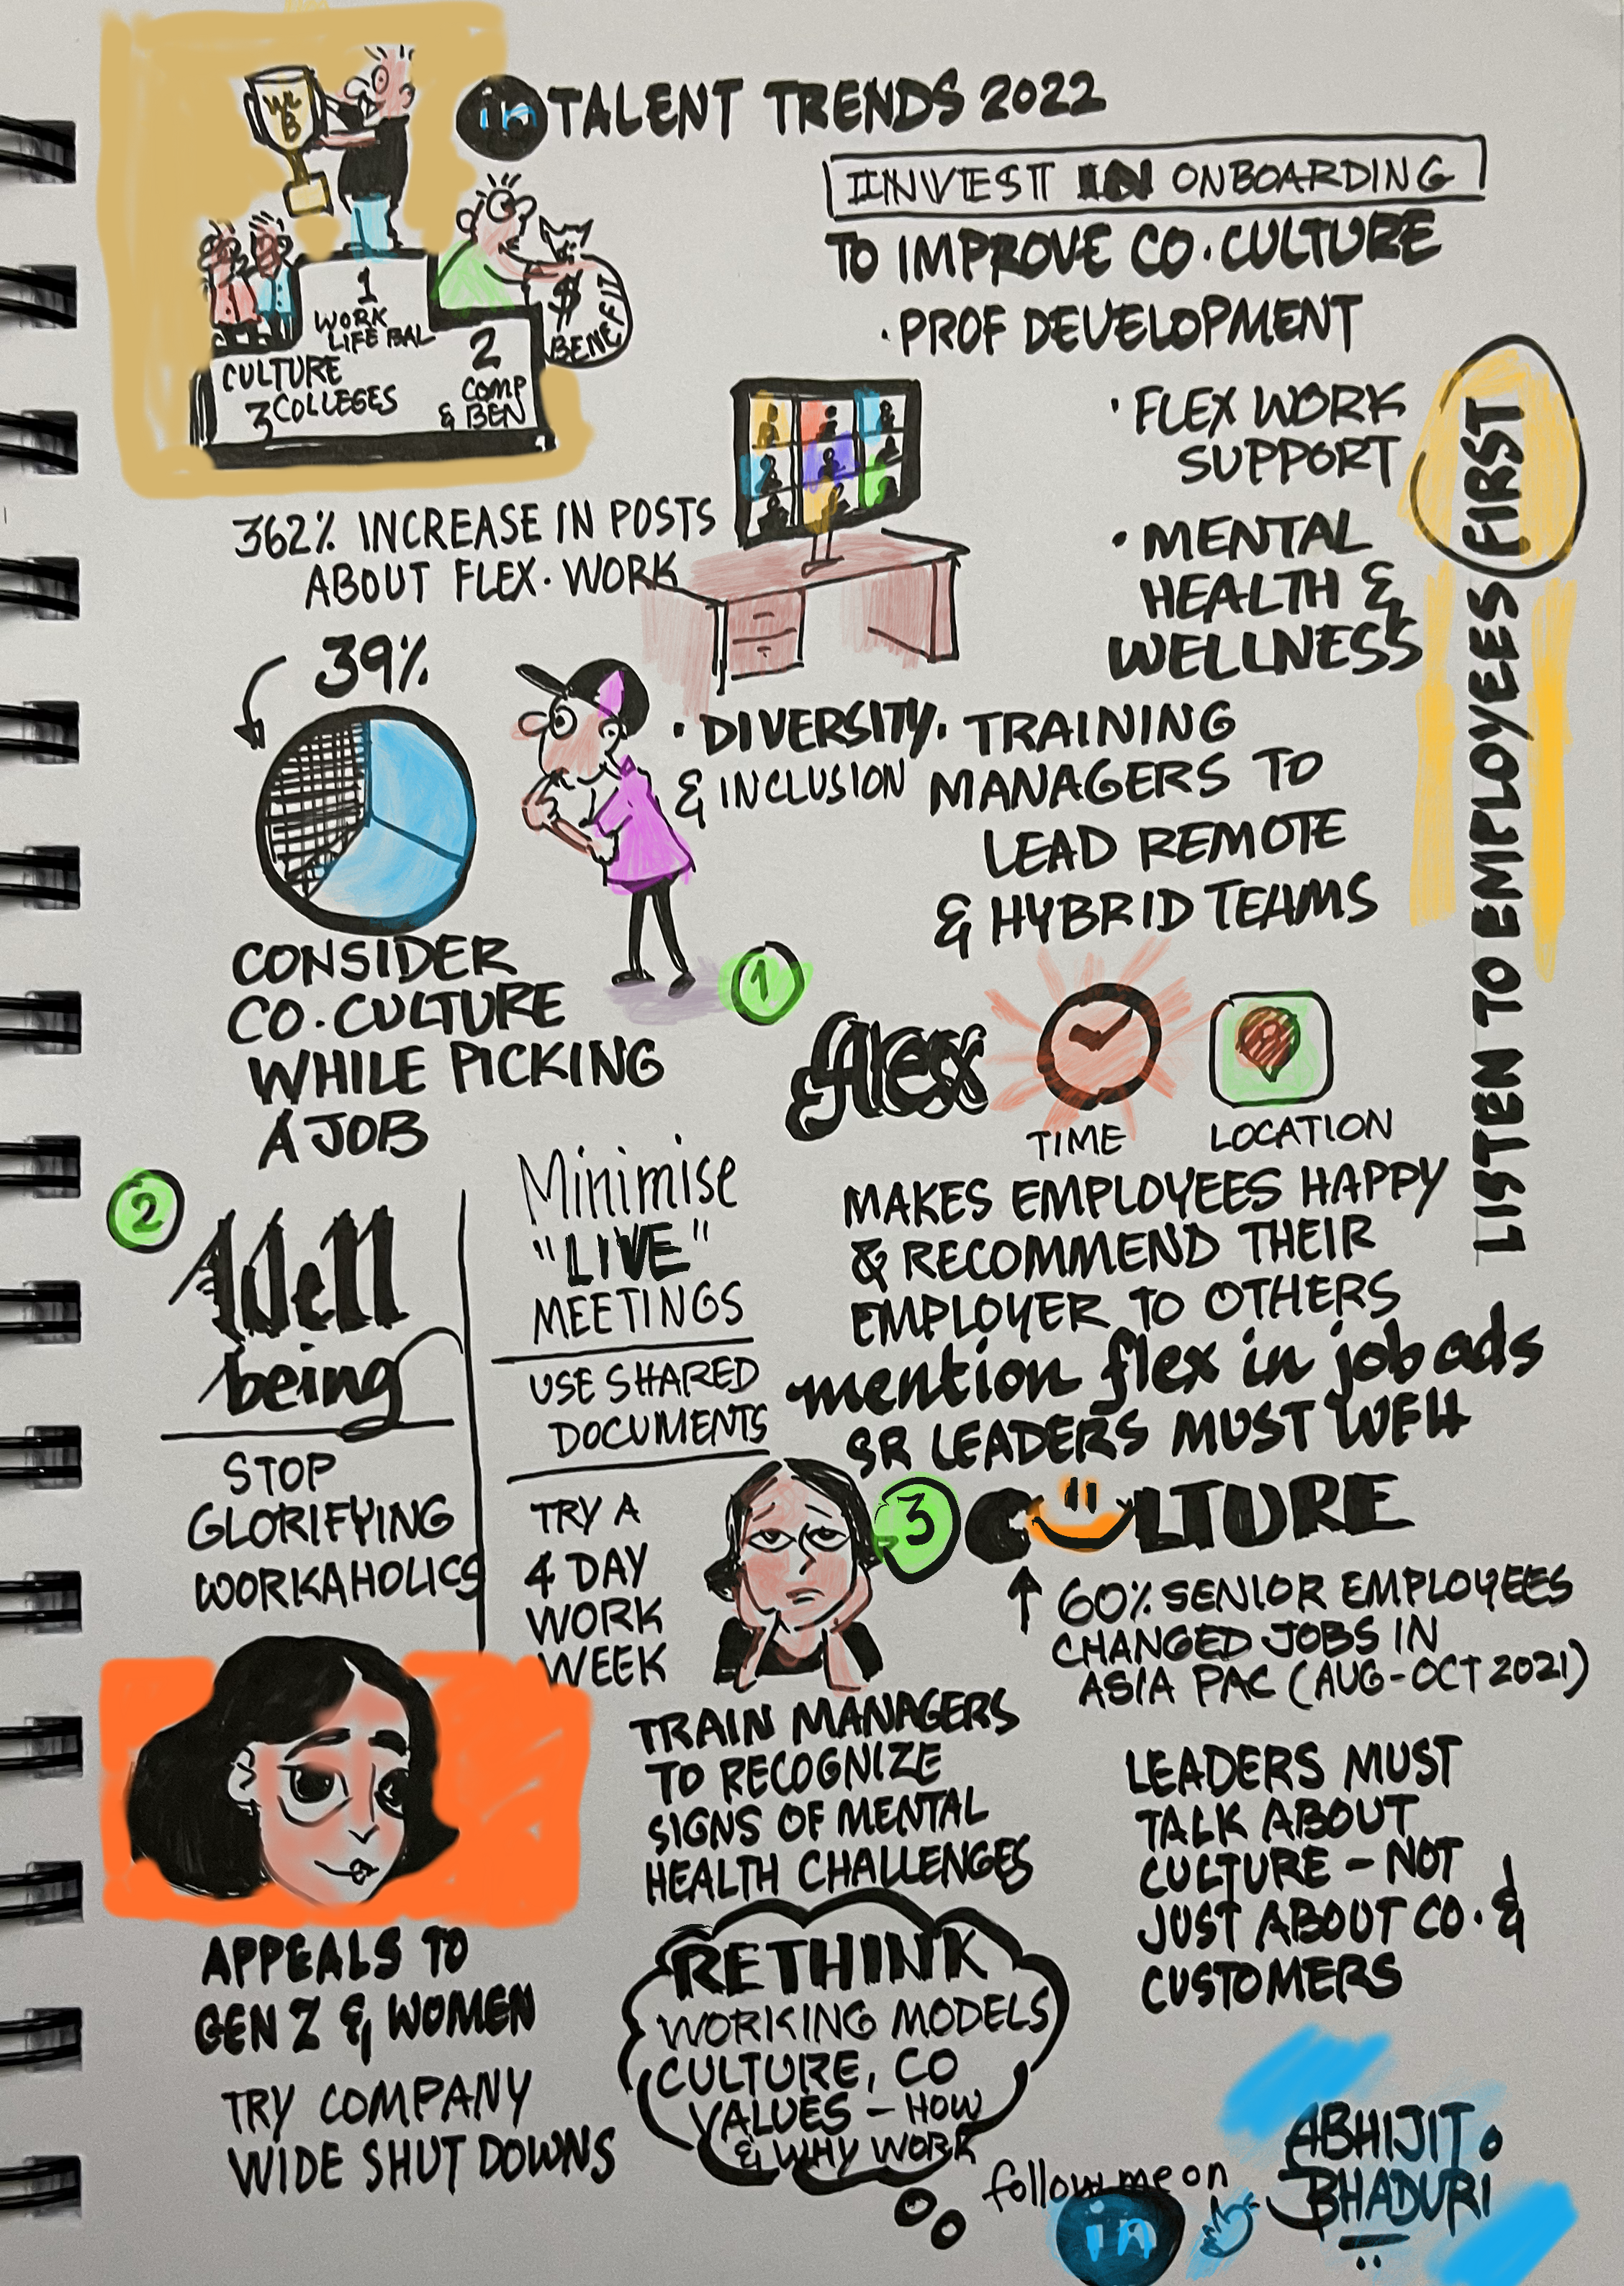 in TALENT TRENDS 2022
WL
B
1
WORK
LIFE BAL
2
COMP
& BEN
CULTURE
3 COLLEGES
$
BENEFIT
INVEST IN ONBOARDING
TO IMPROVE CO. CULTURE
· PROF DEVELOPMENT
· FLEX WORK
SUPPORT
· MENTAL
HEALTH &
WELLNESS
· DIVERSITY
& INCLUSION
· TRAINING
MANAGERS TO
LEAD REMOTE
& HYBRID TEAMS
LISTEN TO EMPLOYEES FIRST
362% INCREASE IN POSTS
ABOUT FLEX. WORK
39%
CONSIDER
CO. CULTURE
WHILE PICKING
A JOB
1
flex
TIME
LOCATION
MAKES EMPLOYEES HAPPY
& RECOMMEND THEIR
EMPLOYER TO OTHERS
mention flex in job ads
SR LEADERS MUST WFH
2
Well
being
STOP
GLORIFYING
WORKAHOLICS
Minimise
"LIVE"
MEETINGS
USE SHARED
DOCUMENTS
TRY A
4 DAY
WORK
WEEK
APPEALS TO
GEN Z & WOMEN
TRY COMPANY
WIDE SHUT DOWNS
TRAIN MANAGERS
TO RECOGNIZE
SIGNS OF MENTAL
HEALTH CHALLENGES
RETHINK
WORKING MODELS
CULTURE, CO
VALUES - HOW
& WHY WORK
3
CULTURE
↑ 60% SENIOR EMPLOYEES
CHANGED JOBS IN
ASIA PAC (AUG-OCT 2021)
LEADERS MUST
TALK ABOUT
CULTURE - NOT
JUST ABOUT CO. &
CUSTOMERS
follow me on
in
ABHIJIT
BHADURI